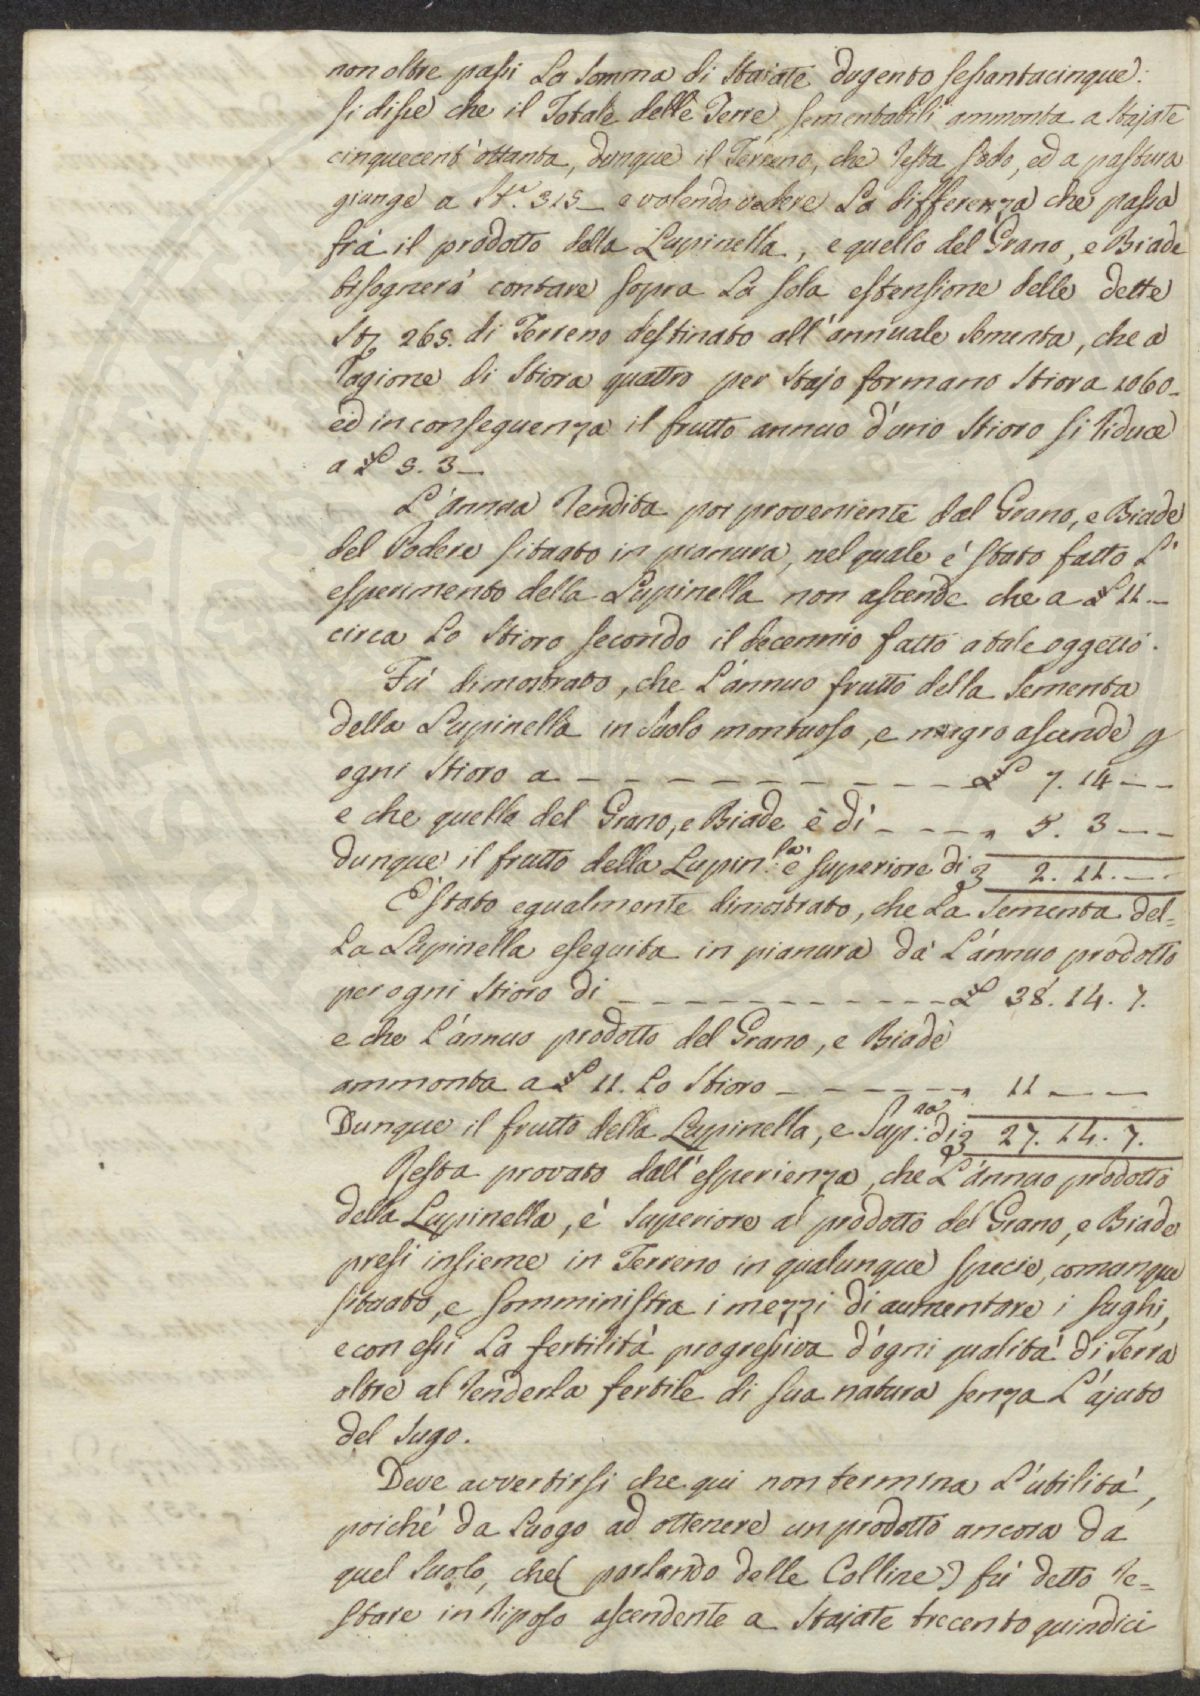 non oltre passi La Somma di Staiate dugento sessantacinque:
si disse che il Totale delle Terre sementabili ammonta a Stajate
cinquecent'ottanta, dunque il Terreno, che resta sodo, ed a pastura
giunge a St.ª 315_ e volendo vedere La differenza che passa
frà il prodotto della Lupinella, e quello del Grano, e Biade
bisognerà contare sopra La sola estensione delle dette
St. 265. di Terreno destinato all'annuale Sementa, che a
ragione di Stiora quattro per Stajo formano Stiora 1060_
ed in conseguenza il frutto annuo d'uno Stioro si riduce
a £ 5. 3_
L'annua rendita poi proveniente dal Grano, e Biade
del Podere situato in pianura, nel quale é stato fatto L'
esperimento della Lupinella non ascende che a £ 11_
circa Lo Stioro secondo il decennio fatto a tale oggetto.
Fù dimostrato, che L'annuo frutto della Sementa
della Lupinella in Suolo montuoso, e magro ascende p
ogni Stioro a _ _ _ _ _ _ _ _ _ _ _ £ 7. 14 _ _
e che quella del Grano, e Biade è di _ _ _ _ „ 5. 3 _ _
dunque il frutto della Lupin.la è superiore di 2. 11. _ _
É stato egualmente dimostrato, che La Sementa del=
La Lupinella eseguita in pianura dà L'annuo prodotto
per ogni Stioro di _ _ _ _ _ _ _ _ _ _ £ 38. 14. 7.
e che L'annuo prodotto del Grano, e Biade
ammonta a £ 11. Lo Stioro _ _ _ _ _ _ „ 11 _ _
Dunque il frutto della Lupinella, e Sup:ra di 27. 14. 7.
Resta provato dall'esperienza, che L'annuo prodotto
della Lupinella, è Superiore al prodotto del Grano, e Biade
presi insieme in Terreno in qualunque specie, comunque
situato, e somministra i mezzi di aumentare i sughi,
e con essi La fertilità progressiva d'ogni qualità di Terra
oltre al renderla fertile di sua natura senza L'ajuto
del Sugo.
Deve avvertirsi che qui non termina L'utilità,
poichè da Luogo ad ottenere un prodotto ancora da
quel Suolo, che (parlando delle Colline) fù detto re=
stare in riposo ascendente a Stajate trecento quindici